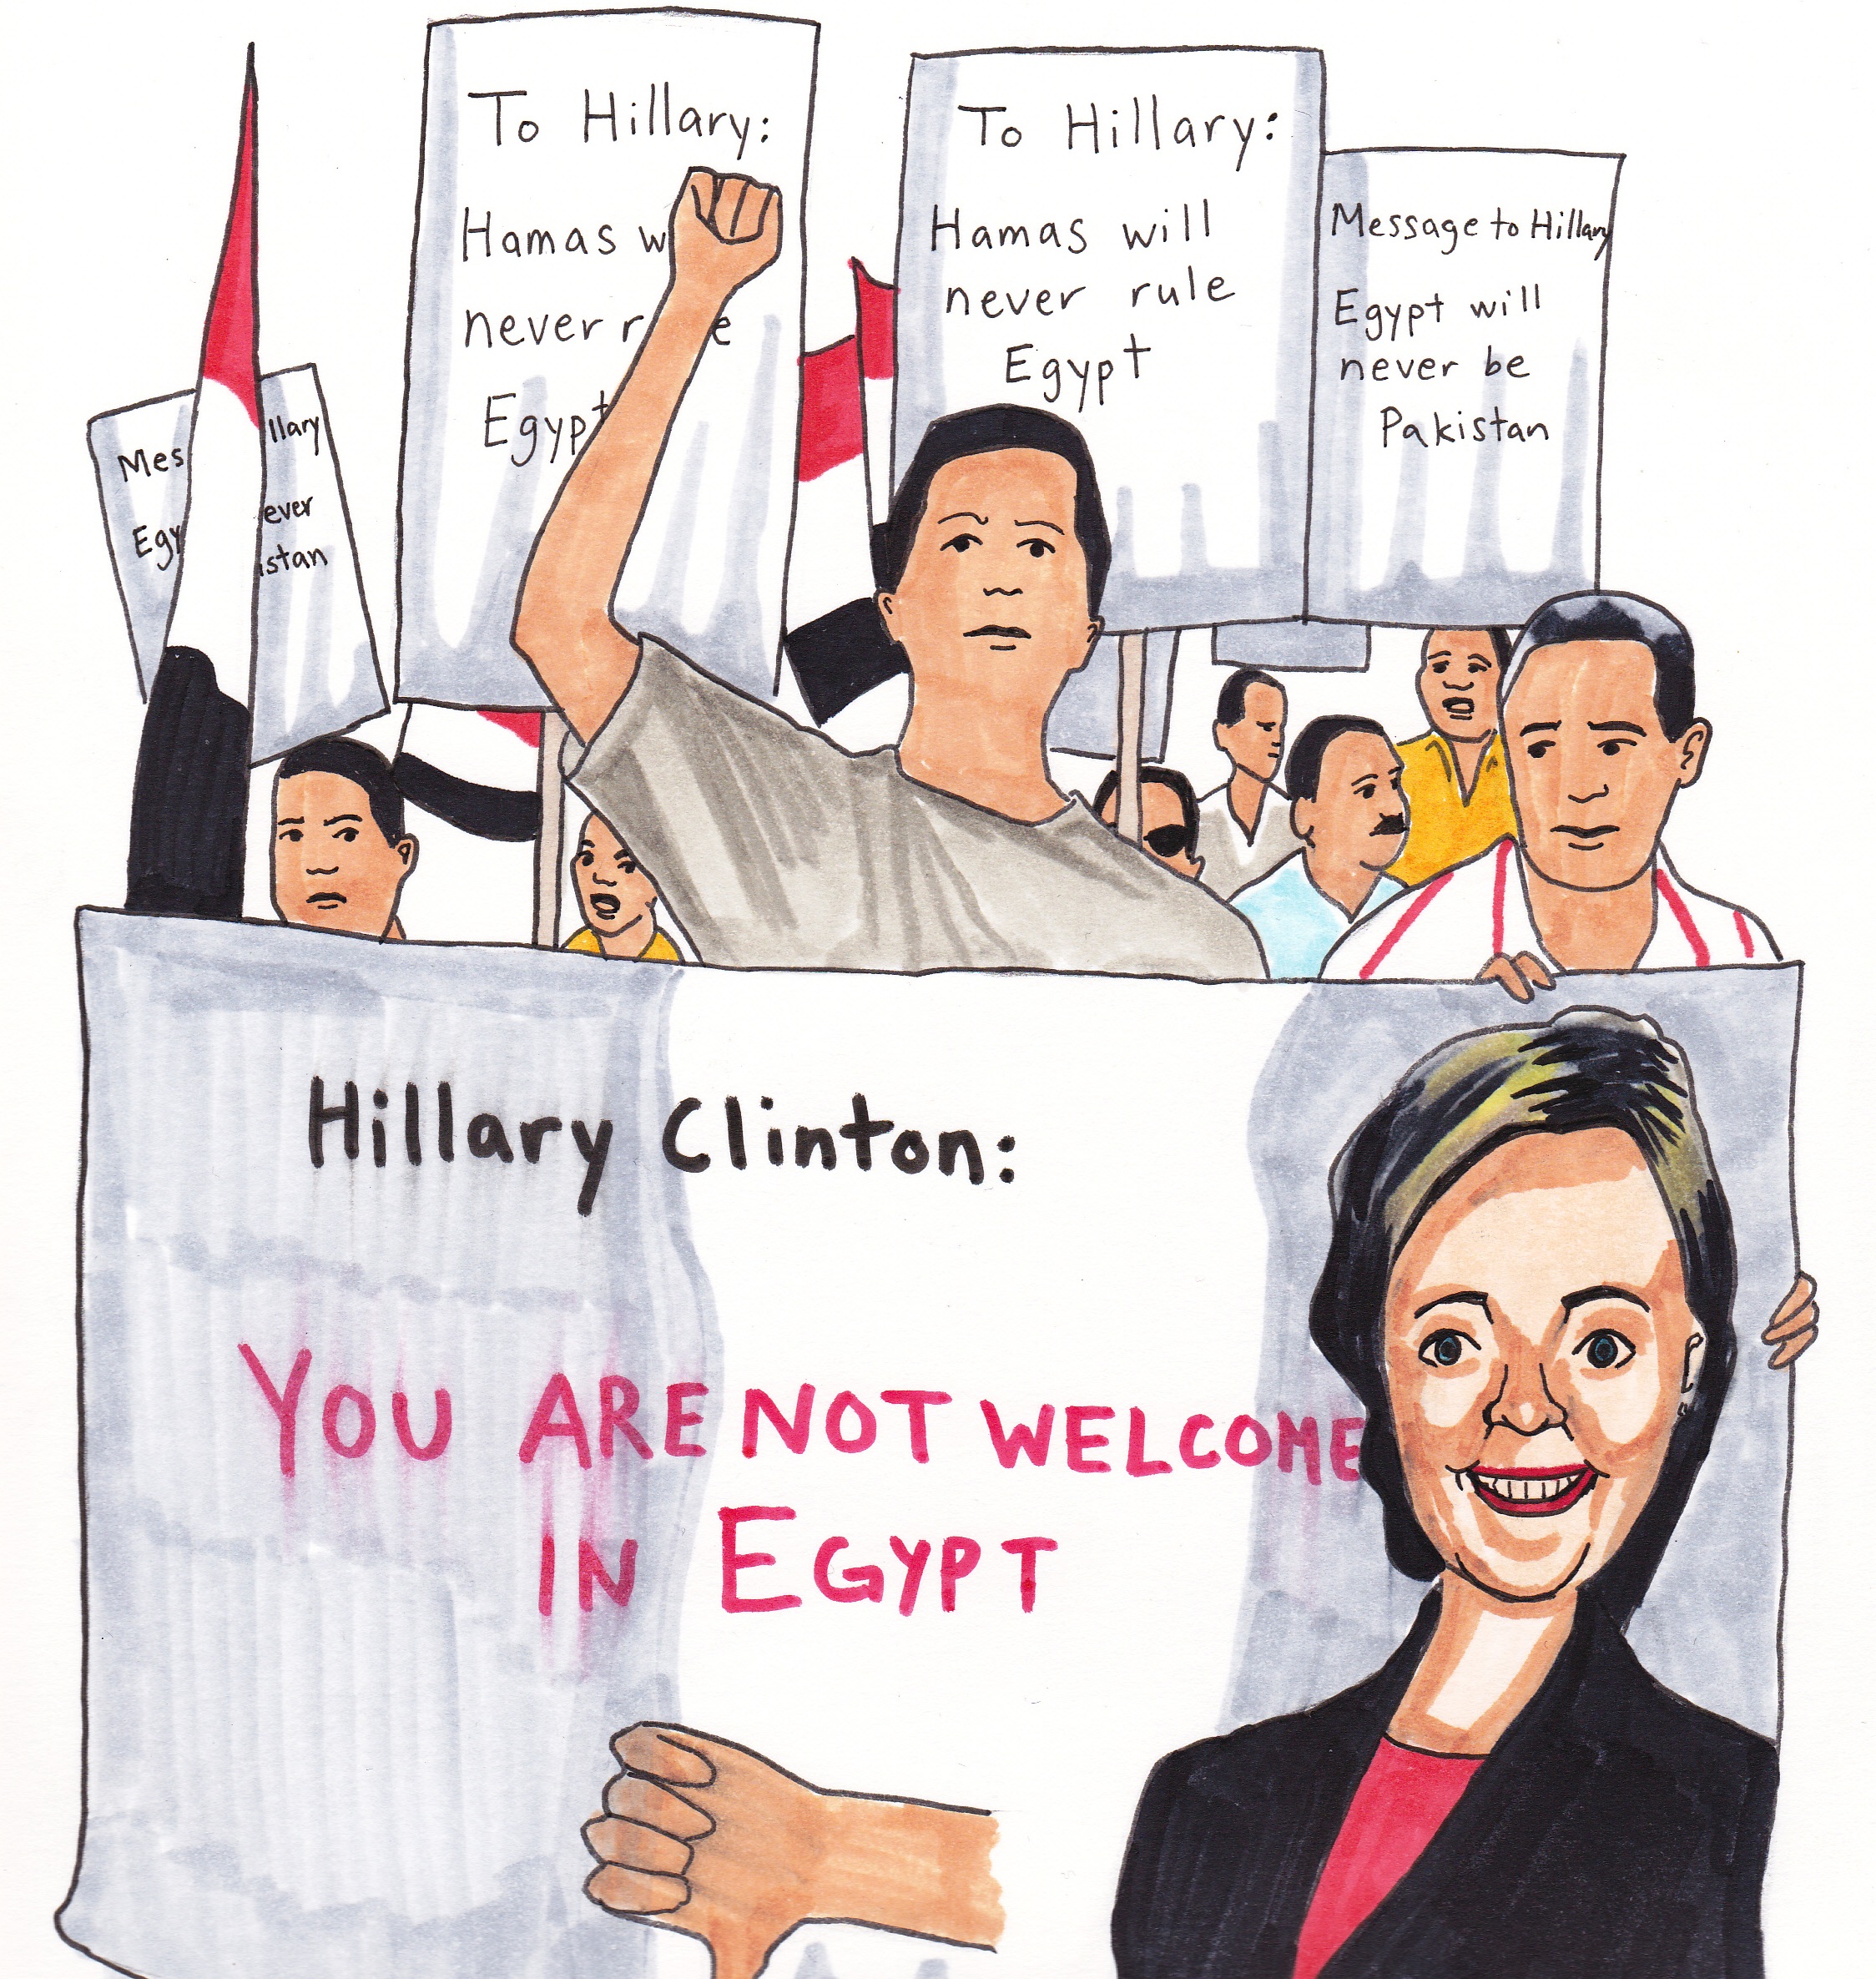 To Hillary:
Hamas w
never r e
Egypt
To Hillary:
Hamas will
never rule
Egypt
Message to Hillary
Egypt will
never be
Pakistan
Mes llary
Egy ever
istan
Hillary Clinton:
YOU ARE NOT WELCOME
IN EGYPT